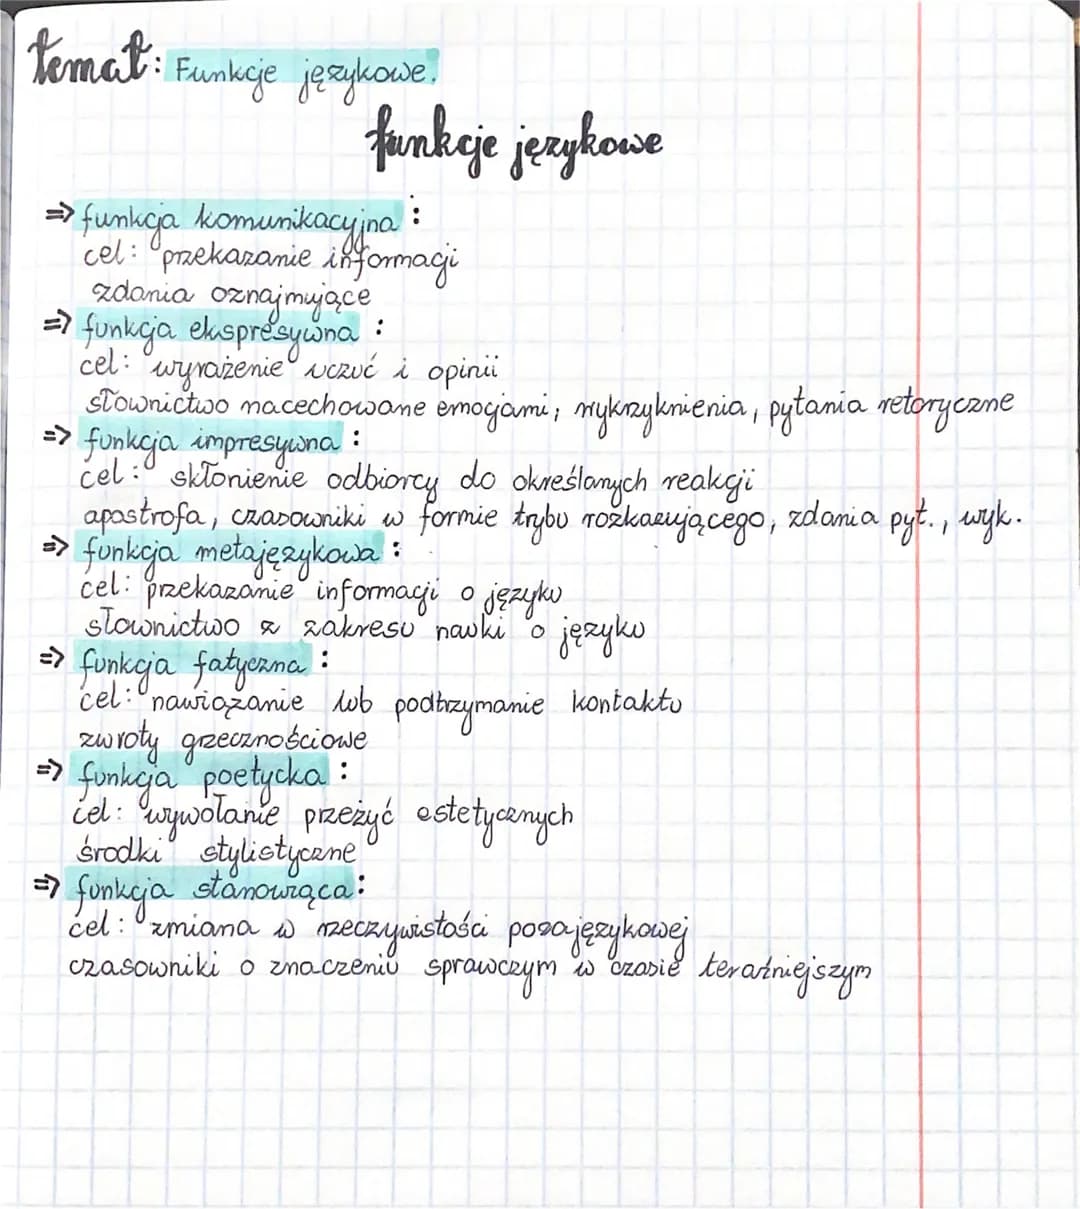 temat: Funkcje językowe.
funkcje językowe
=> funkcja komunikacyjna:
cel: przekazanie informacji
zdania oznajmujące
=> funkcja ekspresywna:
cel: wyrażenie uczuć i opinii
słownictwo nacechowane emocjami, wykrzyknienia, pytania retoryczne
=> funkcja impresywna:
cel: skłonienie odbiorcy do określanych reakcji
apostrofa, czasowniki w formie trybu rozkazującego, zdania pyt., wyk.
=> funkcja metajęzykowa:
cel: przekazanie informacji o języku
słownictwo z zakresu nauki o języku
=> funkcja fatyczna:
cel: nawiązanie lub podtrzymanie kontaktu
zwroty grzecznościowe
=> funkcja poetycka:
cel: wywołanie przeżyć estetycznych
środki stylistyczne
=> funkcja stanowiąca:
cel: zmiana w rzeczywistości pozajęzykowej
czasowniki o znaczeniu sprawczym w czasie teraźniejszym